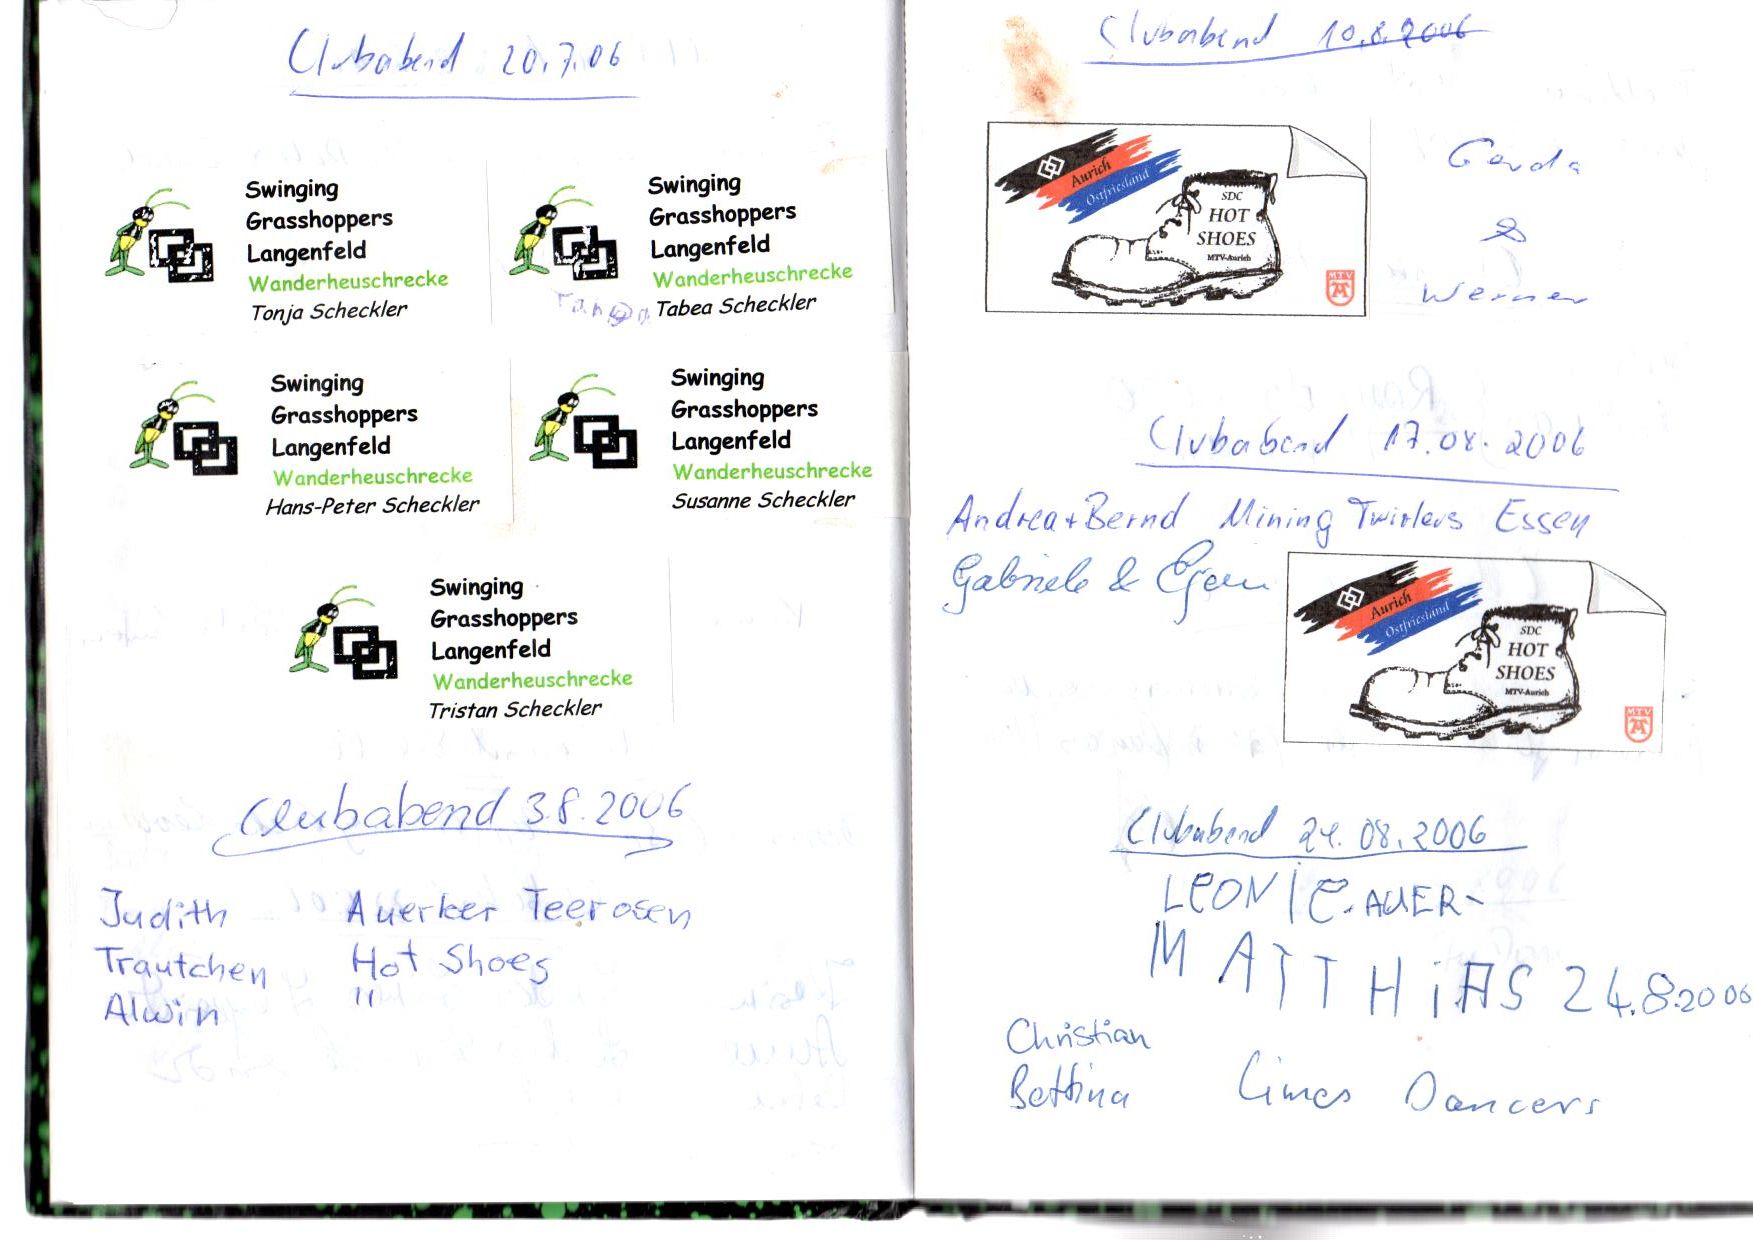 Clubabend 20.7.06
Swinging
Grasshoppers
Langenfeld
Wanderheuschrecke
Tonja Scheckler
Swinging
Grasshoppers
Langenfeld
Wanderheuschrecke
Tabea Scheckler
Swinging
Grasshoppers
Langenfeld
Wanderheuschrecke
Hans-Peter Scheckler
Swinging
Grasshoppers
Langenfeld
Wanderheuschrecke
Susanne Scheckler
Swinging
Grasshoppers
Langenfeld
Wanderheuschrecke
Tristan Scheckler
Clubabend 3.8.2006
Judith Auerker Teerosen
Trautchen Hot Shoes
Alwin "
Clubabend 10.8.2006
Aurich
Ostfriesland
SDC
HOT
SHOES
MTV-Aurich
MTV
Gerda
&
Werner
Clubabend 17.08.2006
Andrea + Bernd Mining Twirlers Essen
Gabriele &
Aurich
Ostfriesland
SDC
HOT
SHOES
MTV-Aurich
MTV
Clubabend 24.08.2006
LEONIE AUER
MATTHiAS 24.8.2006
Christian
Bettina Limes Dancers